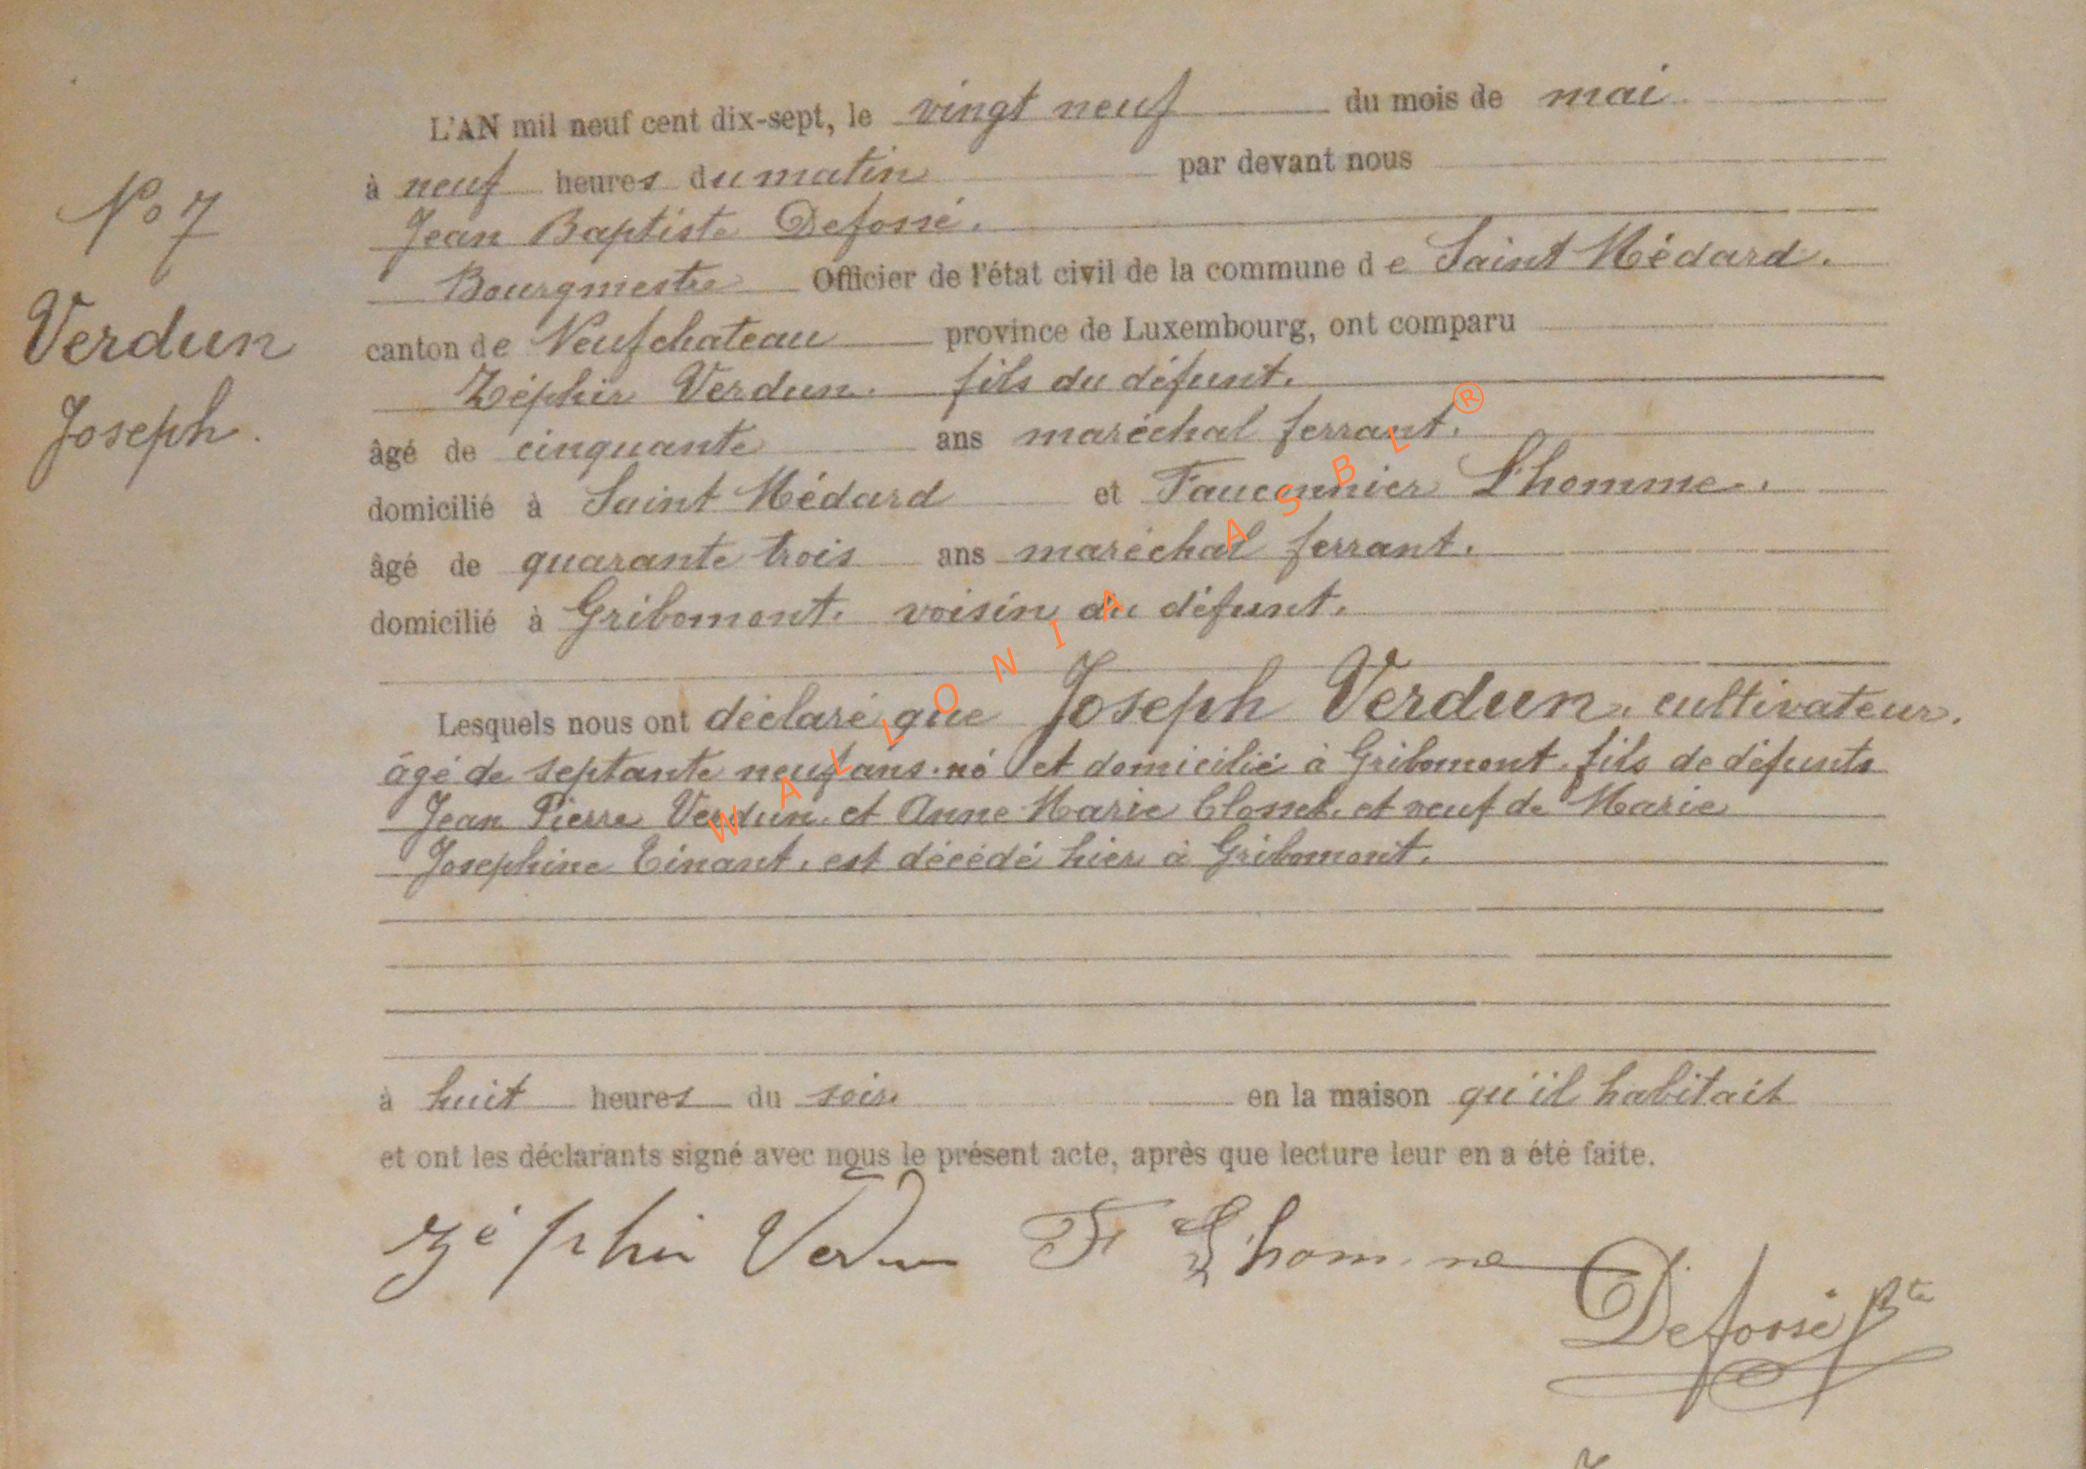 L'AN mil neuf cent dix-sept, le vingt neuf du mois de mai
à neuf heures du matin par devant nous
Jean Baptiste Defossé.
Bourgmestre Officier de l'état civil de la commune de Saint Médard.
canton de Neufchateau province de Luxembourg, ont comparu
Zéphir Verdun. fils du défunt.
âgé de cinquante ans maréchal ferrant.
domicilié à Saint Médard et Fauconnier Lhomme.
âgé de quarante trois ans maréchal ferrant.
domicilié à Gribomont. voisin du défunt.
No 7
Verdun
Joseph.
Lesquels nous ont déclaré que Joseph Verdun, cultivateur.
âgé de septante neuf ans. né et domicilié à Gribomont. fils de défunts
Jean Pierre Verdun. et Anne Marie Closset. et veuf de Marie
Josephine Tinant. est décédé hier à Gribomont.
à huit heures du soir en la maison qu'il habitait
et ont les déclarants signé avec nous le présent acte, après que lecture leur en a été faite.
Zéphir Verdun F Lhomme
Defossé Bte
WALLONIA ASBL®